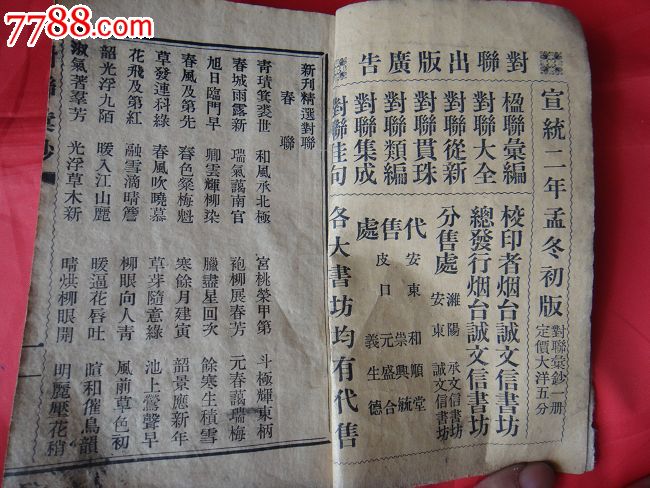 7788.com
對聯出版廣告
宣統二年孟冬初版
對聯彙鈔一册
定價大洋五分
楹聯彙編
對聯大全
對聯從新
對聯貫珠
對聯類編
對聯集成
對聯佳句
校印者烟台誠文信書坊
總發行烟台誠文信書坊
分售處
濰陽 承文信書坊
安東 誠文信書坊
代售處
安東 和順堂
崇興統
皮口 元盛合
義生德
各大書坊均有代售
新刊精選對聯
春聯
青瑣箕裘世 和風承北極 宮桃榮甲第 斗極輝東柄
春城雨露新 瑞氣藹南官 袍柳展春芳 元春藹瑞梅
旭日臨門早 卿雲輝柳染 臘盡星回次 餘寒生積雪
春風及第先 春色粲梅魁 寒餘月建寅 韶景應新年
草發連科綠 春風吹曉慕 草芽隨意綠 池上鶯聲早
花飛及第紅 融雪滴晴簷 柳眼向人青 風前草色初
韶光浮九陌 暖入江山麗 暖逼花唇吐 暄和催鳥韻
淑氣著羣芳 光浮草木新 晴烘柳眼開 明麗壓花梢